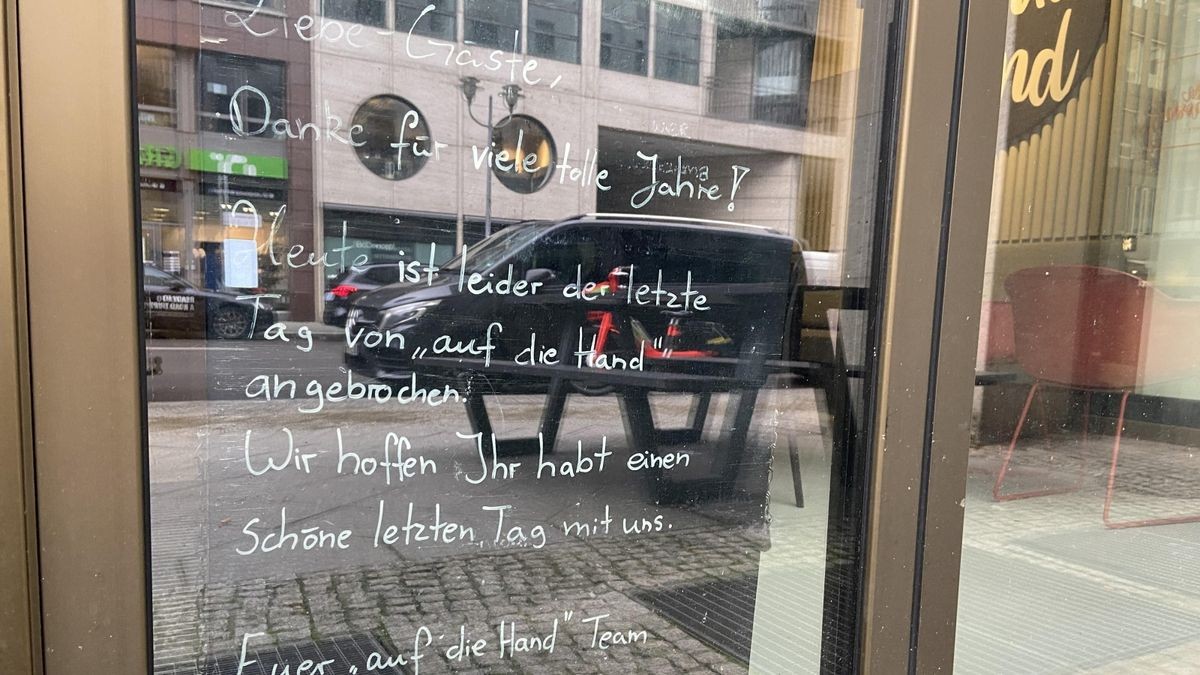 Liebe Gäste,
Danke für viele tolle Jahre!
Heute ist leider der letzte
Tag von „auf die Hand"
angebrochen.
Wir hoffen Ihr habt einen
schöne letzten Tag mit uns.
Euer „auf die Hand" Team
nd
BoConcept